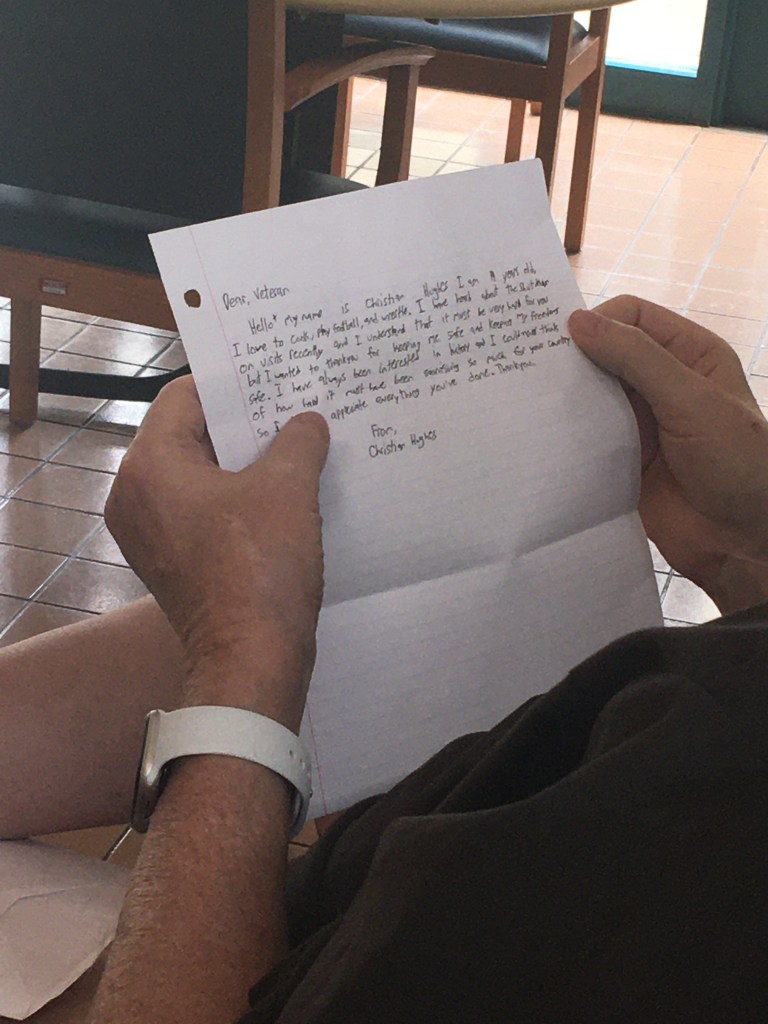 Dear, Veteran
Hello my name is Christian Hughes I am years old,
I love to cook, play football, and wrestle. I have heard about The
on visits recently and I understand that it must be very hard for you
but I wanted to thankyou for keeping me safe and keeping my freedoms
safe. I have always been interested in history and I could never think
of how hard it must have been so much for your country
so I appreciate everything you've done. Thankyou.
From,
Christian Hughes